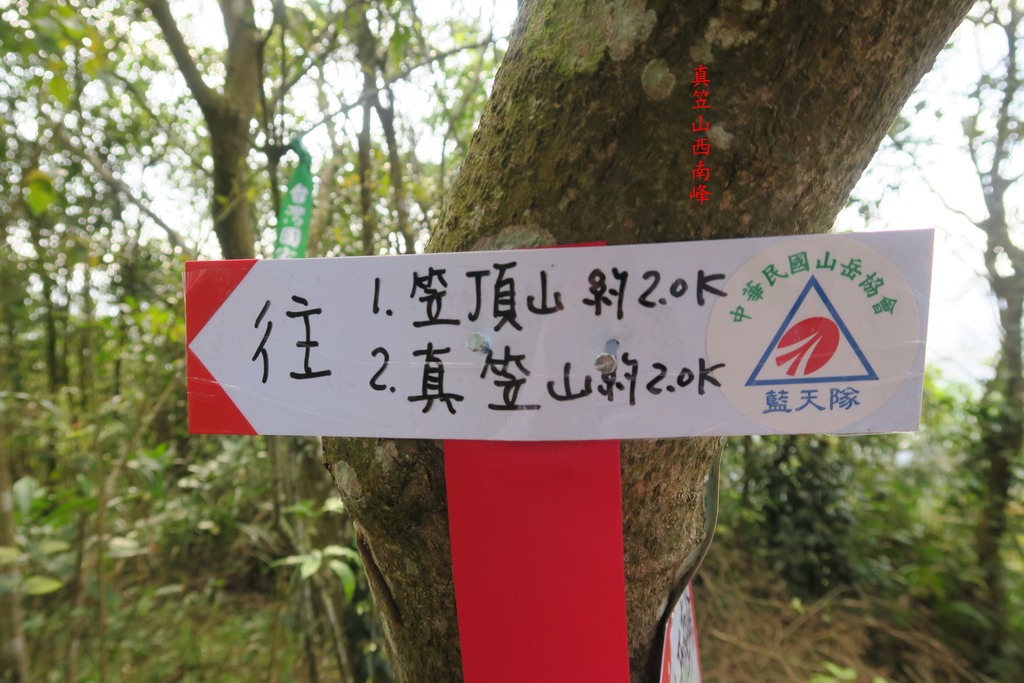 真笠山西南峰
往
1. 笠頂山 約2.0K
2. 真笠山約2.0K
中華民國山岳協會
藍天隊
台灣團